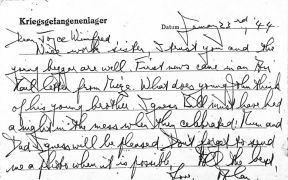 Kriegsgefangenenlager Datum January 23rd, '44
Dear Joyce Winifred
Nice work sister, I trust you and the
young beggar are well. First news came in Don
Kent's letter from Mieze. What does young John think
of his young brother. I guess Bill must have had
a night in the mess when they celebrated. Mum and
Dad I guess will be pleased. Don't forget to send
me a photo when it is possible. All the best,
Love, Alan